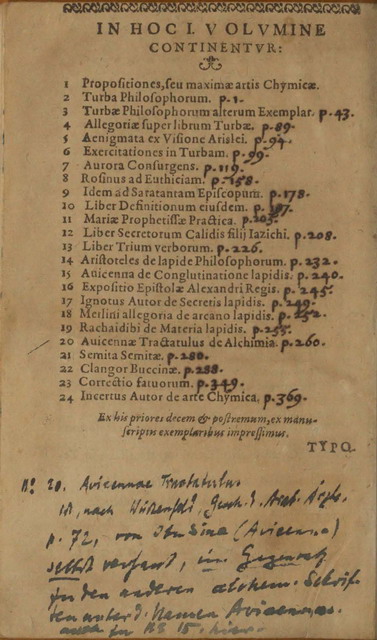 IN HOC I. VOLVMINE
CONTINENTVR:
1 Propositiones, seu maximæ artis Chymicæ.
2 Turba Philosophorum. p. 1.
3 Turbæ Philosophorum alterum Exemplar. p. 43.
4 Allegoriæ super librum Turbæ. p. 89.
5 Aenigmata ex Visione Arislei. p. 94.
6 Exercitationes in Turbam. p. 99.
7 Aurora Consurgens. p. 119.
8 Rosinus ad Euthiciam. p. 158.
9 Idem ad Saratantam Episcopum. p. 178.
10 Liber Definitionum eiusdem. p. 187.
11 Mariæ Prophetissæ Practica. p. 205.
12 Liber Secretorum Calidis filij Iazichi. p. 208.
13 Liber Trium verborum. p. 226.
14 Aristoteles de lapide Philosophorum. p. 232.
15 Auicenna de Conglutinatione lapidis. p. 240.
16 Expositio Epistolæ Alexandri Regis. p. 245.
17 Ignotus Autor de Secretis lapidis. p. 249.
18 Merlini allegoria de arcano lapidis. p. 252.
19 Rachaidibi de Materia lapidis. p. 255.
20 Auicennæ Tractatulus de Alchimia. p. 260.
21 Semita Semitæ. p. 280.
22 Clangor Buccinæ. p. 288.
23 Correctio fatuorum. p. 349.
24 Incertus Autor de arte Chymica. p. 369.
Ex his priores decem & postremum, ex manu-
scriptis exemplaribus impressimus.
TYPO-
No. 20. Avicennae Tractatulus
ist, nach Wüstenfeld, Gesch. d. Arab. Ärzte
p. 72, von Ibn Sina (Avicenna)
selbst verfasst, im Gegensatz
zu den anderen alchem. Schrif-
ten unter d. Namen Avicennas.
zu No 15. hier.